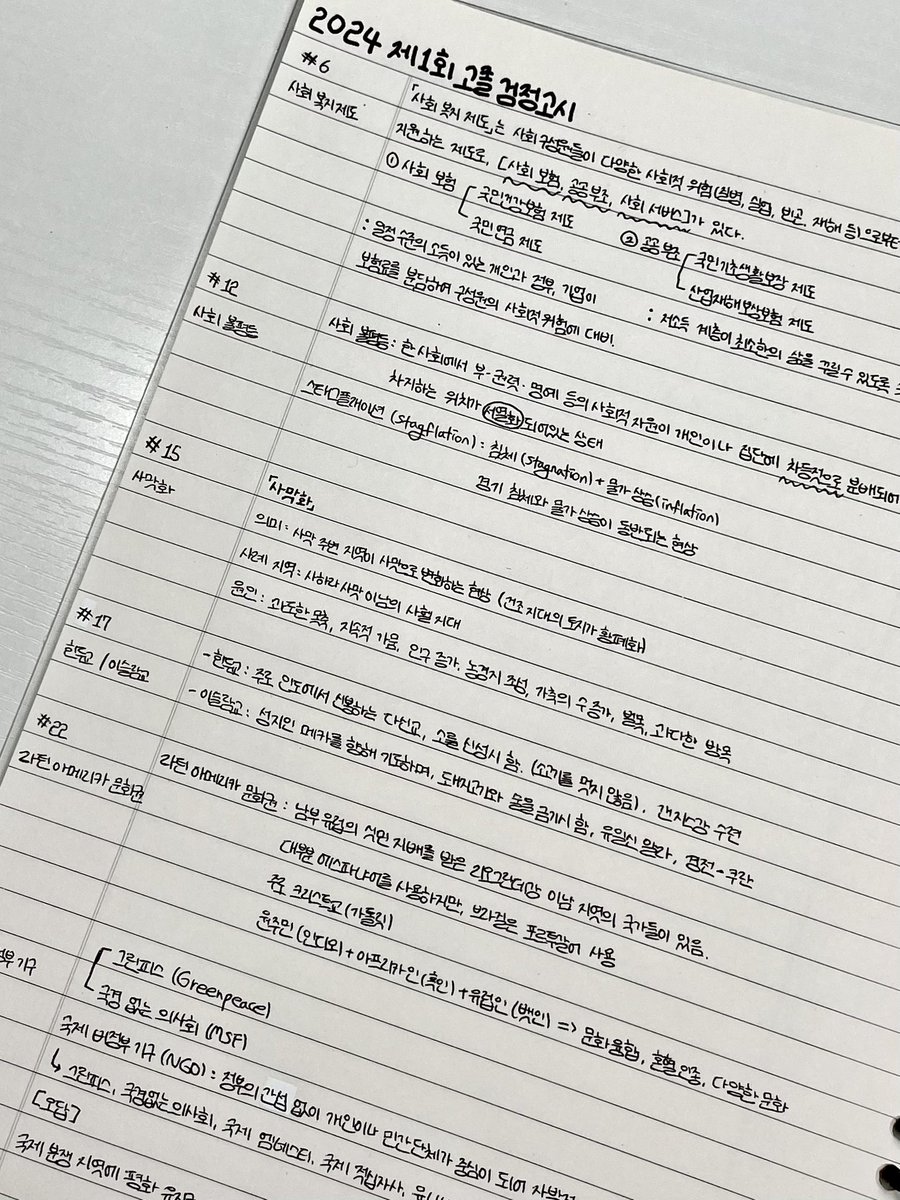 2024 제1회 고졸 검정고시
#6
사회 복지 제도
「사회 복지 제도」는 사회 구성원들이 다양한 사회적 위험(질병, 실업, 빈곤, 재해 등)으로부터
지원하는 제도로, [사회 보험, 공공 부조, 사회 서비스]가 있다.
① 사회 보험 국민건강보험 제도
국민 연금 제도
: 일정 수준의 소득이 있는 개인과 정부, 기업이
보험료를 분담하여 구성원의 사회적 위험에 대비.
② 공공 부조 국민기초생활보장 제도
산업재해보상보험 제도
: 저소득 계층이 최소한의 삶을 꾸릴 수 있도록
#12
사회 불평등
사회 불평등 : 한 사회에서 부·권력·명예 등의 사회적 자원이 개인이나 집단에 차등적으로 분배되어
차지하는 위치가 서열화되어있는 상태
스태그플레이션 (stagflation) : 침체 (stagnation) + 물가 상승 (inflation)
경기 침체와 물가 상승이 동반되는 현상
#15
사막화
「사막화」
의미 : 사막 주변 지역이 사막으로 변화하는 현상 (건조 지대의 토지가 황폐화)
사례 지역 : 사하라 사막 이남의 사헬 지대
원인 : 과도한 목축, 지속적 가뭄, 인구 증가, 농경지 조성, 가축의 수 증가, 벌목, 과다한 방목
#17
힌두교 / 이슬람교
- 힌두교 : 주로 인도에서 신봉하는 다신교, 소를 신성시 함. (소고기를 먹지 않음), 갠지스강 수련
- 이슬람교 : 성지인 메카를 향해 기도하며, 돼지고기와 술을 금기시 함, 유일신 알라, 경전 - 쿠란
#22
라틴 아메리카 문화권
라틴 아메리카 문화권 : 남부 유럽의 식민 지배를 받은 리오그란데강 이남 지역의 국가들이 있음.
대부분 에스파냐어를 사용하지만, 브라질은 포르투갈어 사용
주로 크리스트교 (가톨릭)
원주민 (인디오) + 아프리카인 (흑인) + 유럽인 (백인) => 문화 융합, 혼혈 인종, 다양한 문화
부 기구
그린피스 (Greenpeace)
국경 없는 의사회 (MSF)
국제 비정부 기구 (NGO) : 정부의 간섭 없이 개인이나 민간단체가 중심이 되어
↳ 그린피스, 국경없는 의사회, 국제 엠네스티, 국제 적십자사,
[오답]
국제 분쟁 지역에 평화